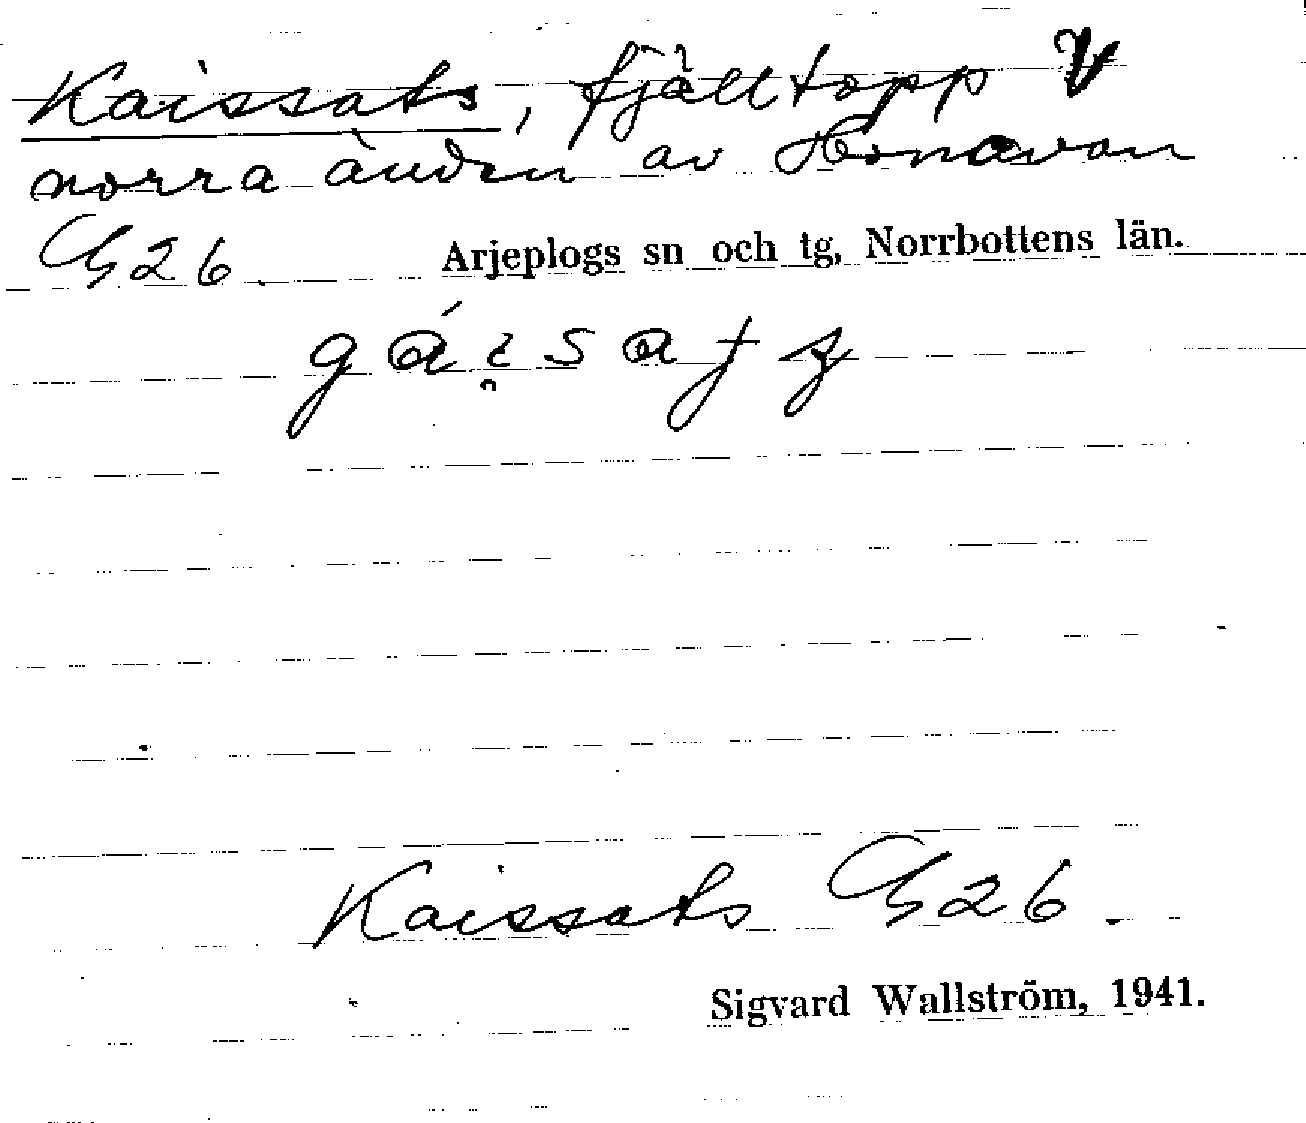 Kaissats, fjälltopp V
norra änden av Hornavan
G26 Arjeplogs sn och tg, Norrbottens län.
Kaissats G26.
Sigvard Wallström, 1941.